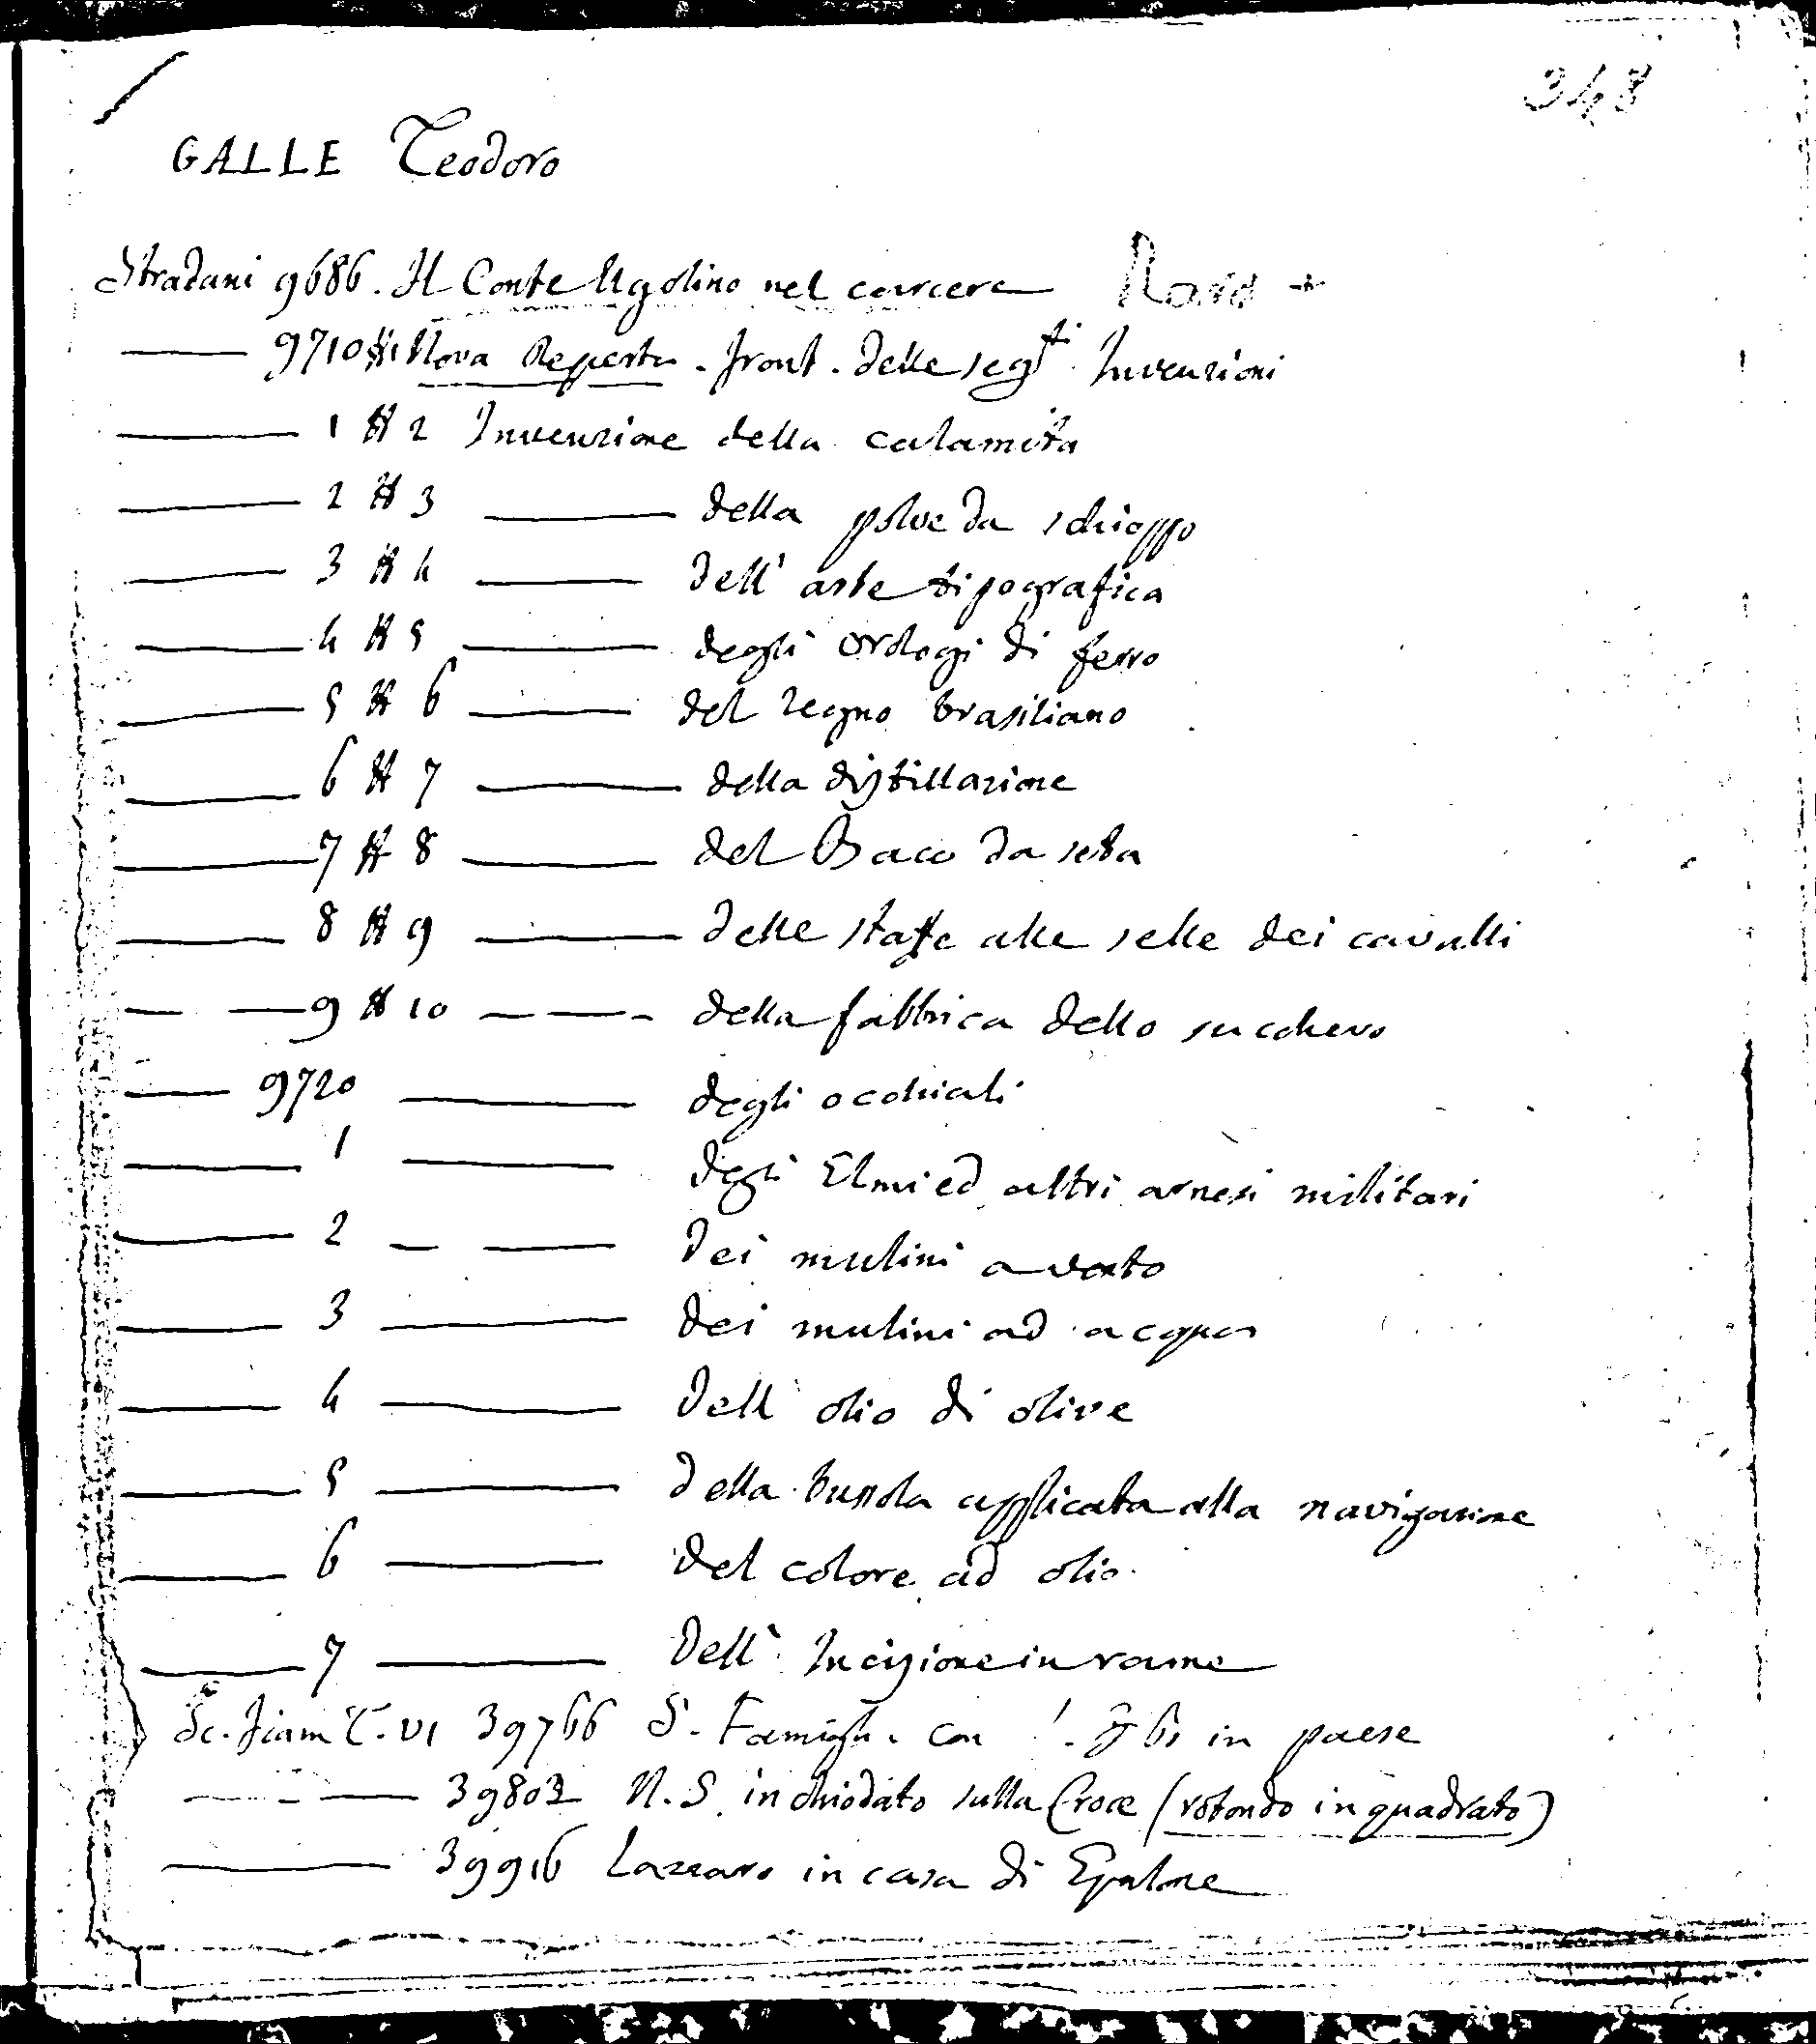 348
GALLE Teodoro
Stradani 9686. Il Conte Ugolino nel carcere Raro +
—— 9710 # 1 Nova Reperta. front. delle seg.ti Invenzioni
—— 1 # 2 Invenzione della calamita
—— 2 # 3 —— della polve da schioppo
—— 3 # 4 —— dell' arte tipografica
—— 4 # 5 —— degli orologi di ferro
—— 5 # 6 —— del regno brasiliano
—— 6 # 7 —— della distillazione
—— 7 # 8 —— del Baco da seta
—— 8 # 9 —— delle staffe alle selle dei cavalli
—— 9 # 10 —— della fabbrica dello succhero
—— 9720 —— degli occhiali
—— 1 —— degli Elmi ed altri arnesi militari
—— 2 —— dei mulini a vento
—— 3 —— dei mulini ad acqua
—— 4 —— dell' olio di olive
—— 5 —— della bussola applicata alla navigazione
—— 6 —— del colore ad olio
—— 7 —— dell' Incisione in rame
Sc. fiam T. VI 39766 S. Famigli. con in paese
—— 39803 N. S. inchiodato sulla Croce (rotondo in quadrato)
—— 39916 Lazzaro in casa di Epulone